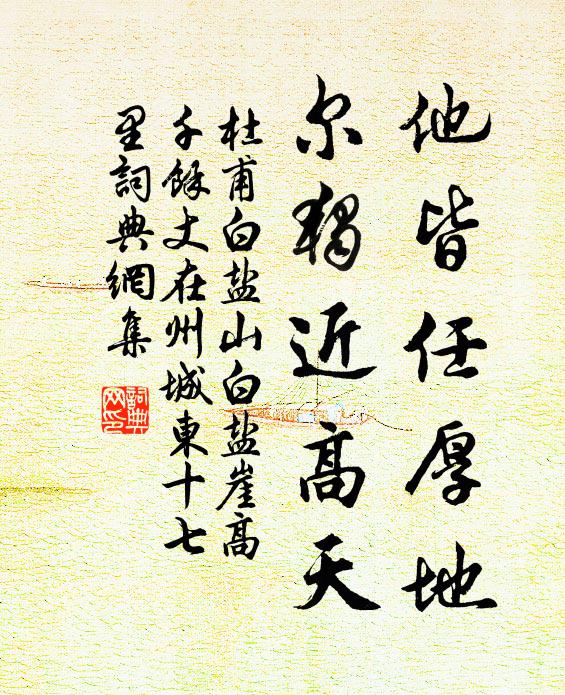 他皆任厚地
尔独近高天
杜甫白盐山白盐崖高
千餘丈在州城東十七
里詞典網集
詞典
网印